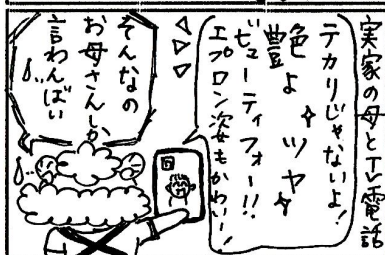 実家の母とTV電話
テカリじゃないよ!
色よ
艶 ツヤ
ビューティフォー!!
エプロン姿もかわいー!
そんなの
お母さんしか
言わんばい